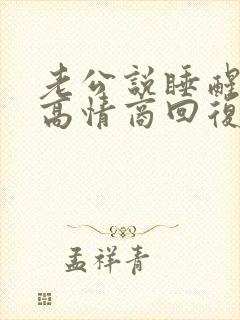 老公說睡醒
高情商回復
孟祥青